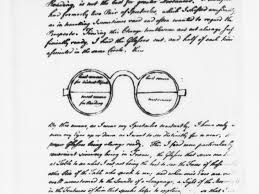 Reading, is not the best for greater Distances.
had formerly two Pair of Spectacles, which I shifted occasionally,
as in travelling I sometimes read and often wanted to regard the
Prospects. Finding this Change troublesome and not always suf-
ficiently ready, I had the Glasses cut, and half of each
associated in the same Circle, thus
least convex for distant Objects
least convex
most convex for Reading
most convex
By this means, as I wear my Spectacles constantly, I have only
move my Eyes up or down as I want to see distinctly far or near,
proper Glasses being always ready. This I find more particularly
convenient since my being in France, the Glasses that serve me
at Table to see what I eat, not being the best to see the Faces of those
Side of the Table who speak to me, and when one's Ears are not
accustomed to the Sounds of a Language, a Sight of the Move-
in the Features of him that speaks helps to explain